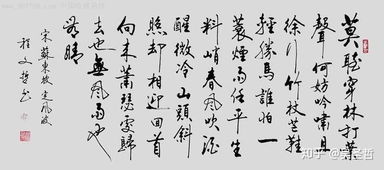 莫聽穿林打葉
聲何妨吟嘯且
徐行竹杖芒鞋
輕勝馬誰怕一
蓑煙雨任平生
料峭春風吹酒
醒微冷山頭斜
照却相迎回首
向来蕭瑟處歸
去也無風雨也
無晴
宋蘇東坡定風波
知乎